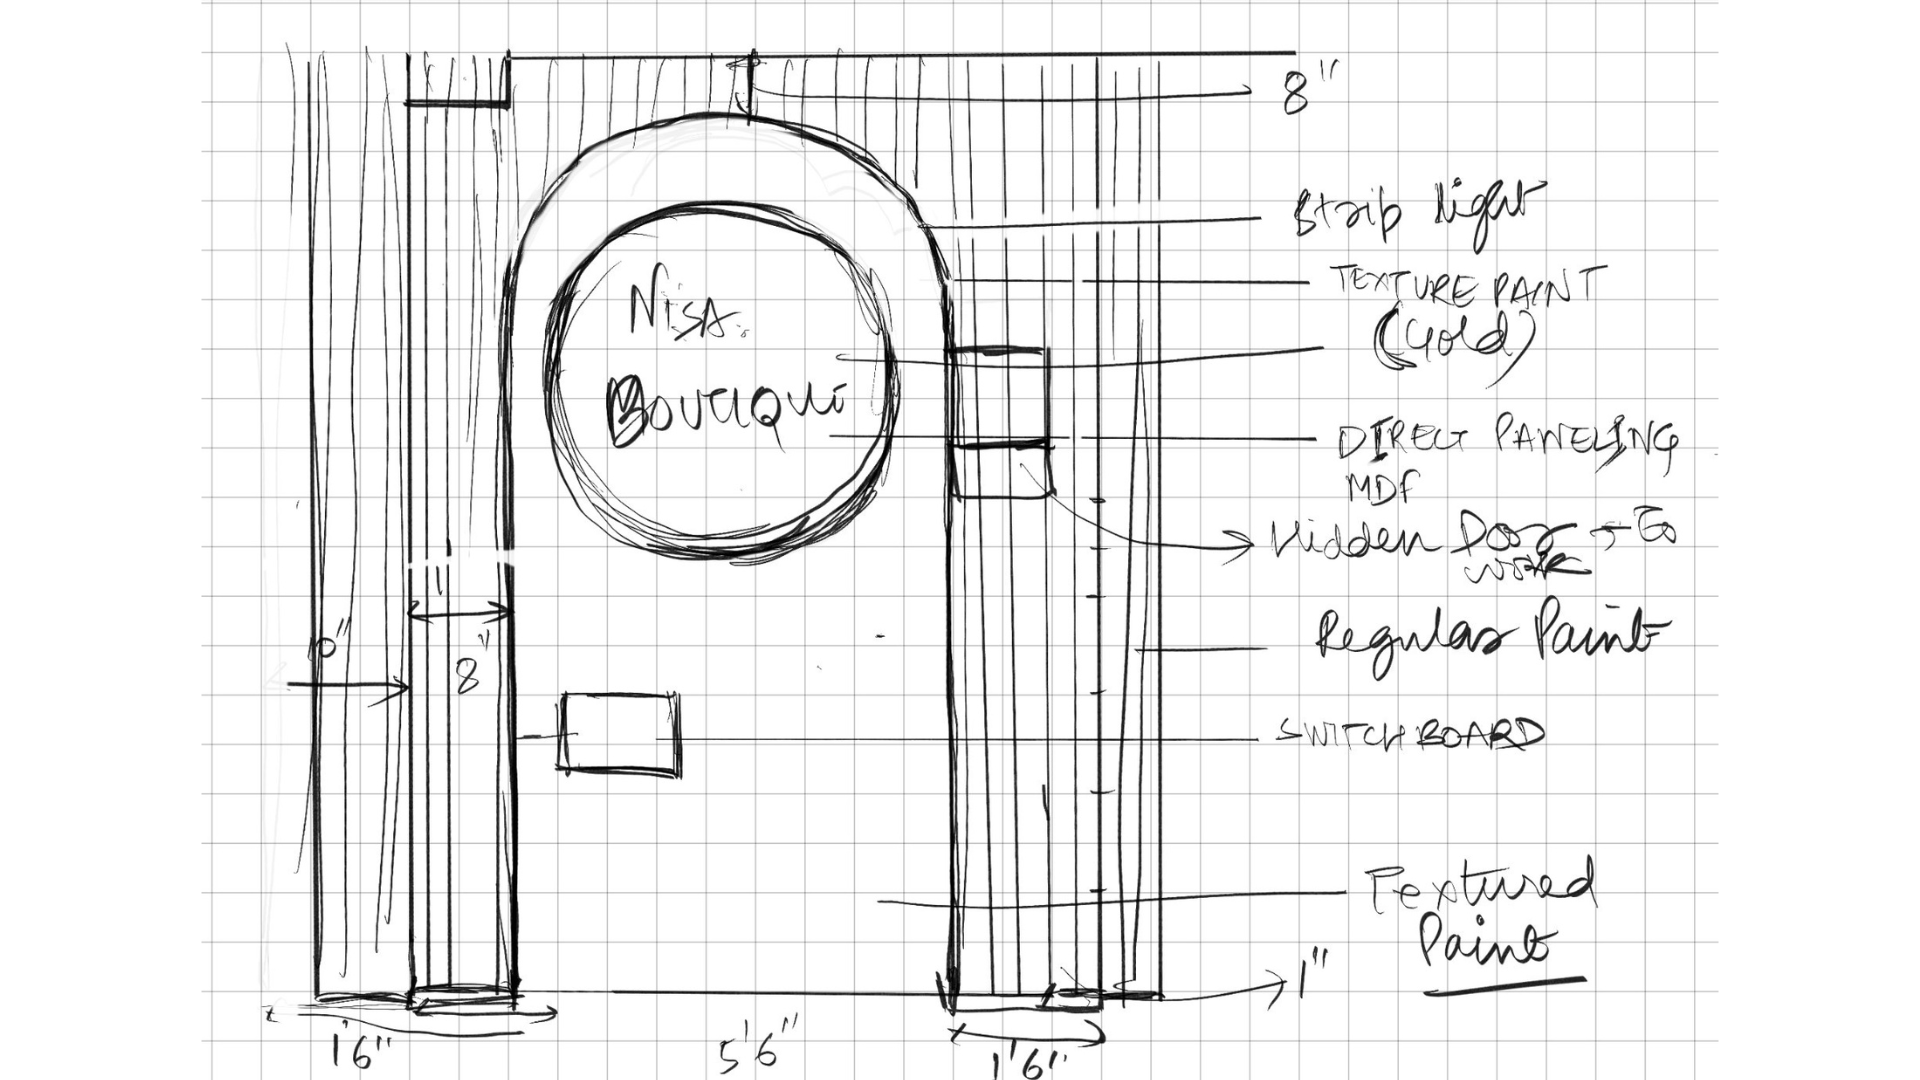 8"
Strip light
TEXTURE PAINT
(Gold)
Nisa
BOUTIQUE
DIRECT PANELING
MDF
Hidden Door → To
work
10"
8"
Regular Paint
SWITCH BOARD
Textured
Paint
1"
1'6"
5'6"
1'6"